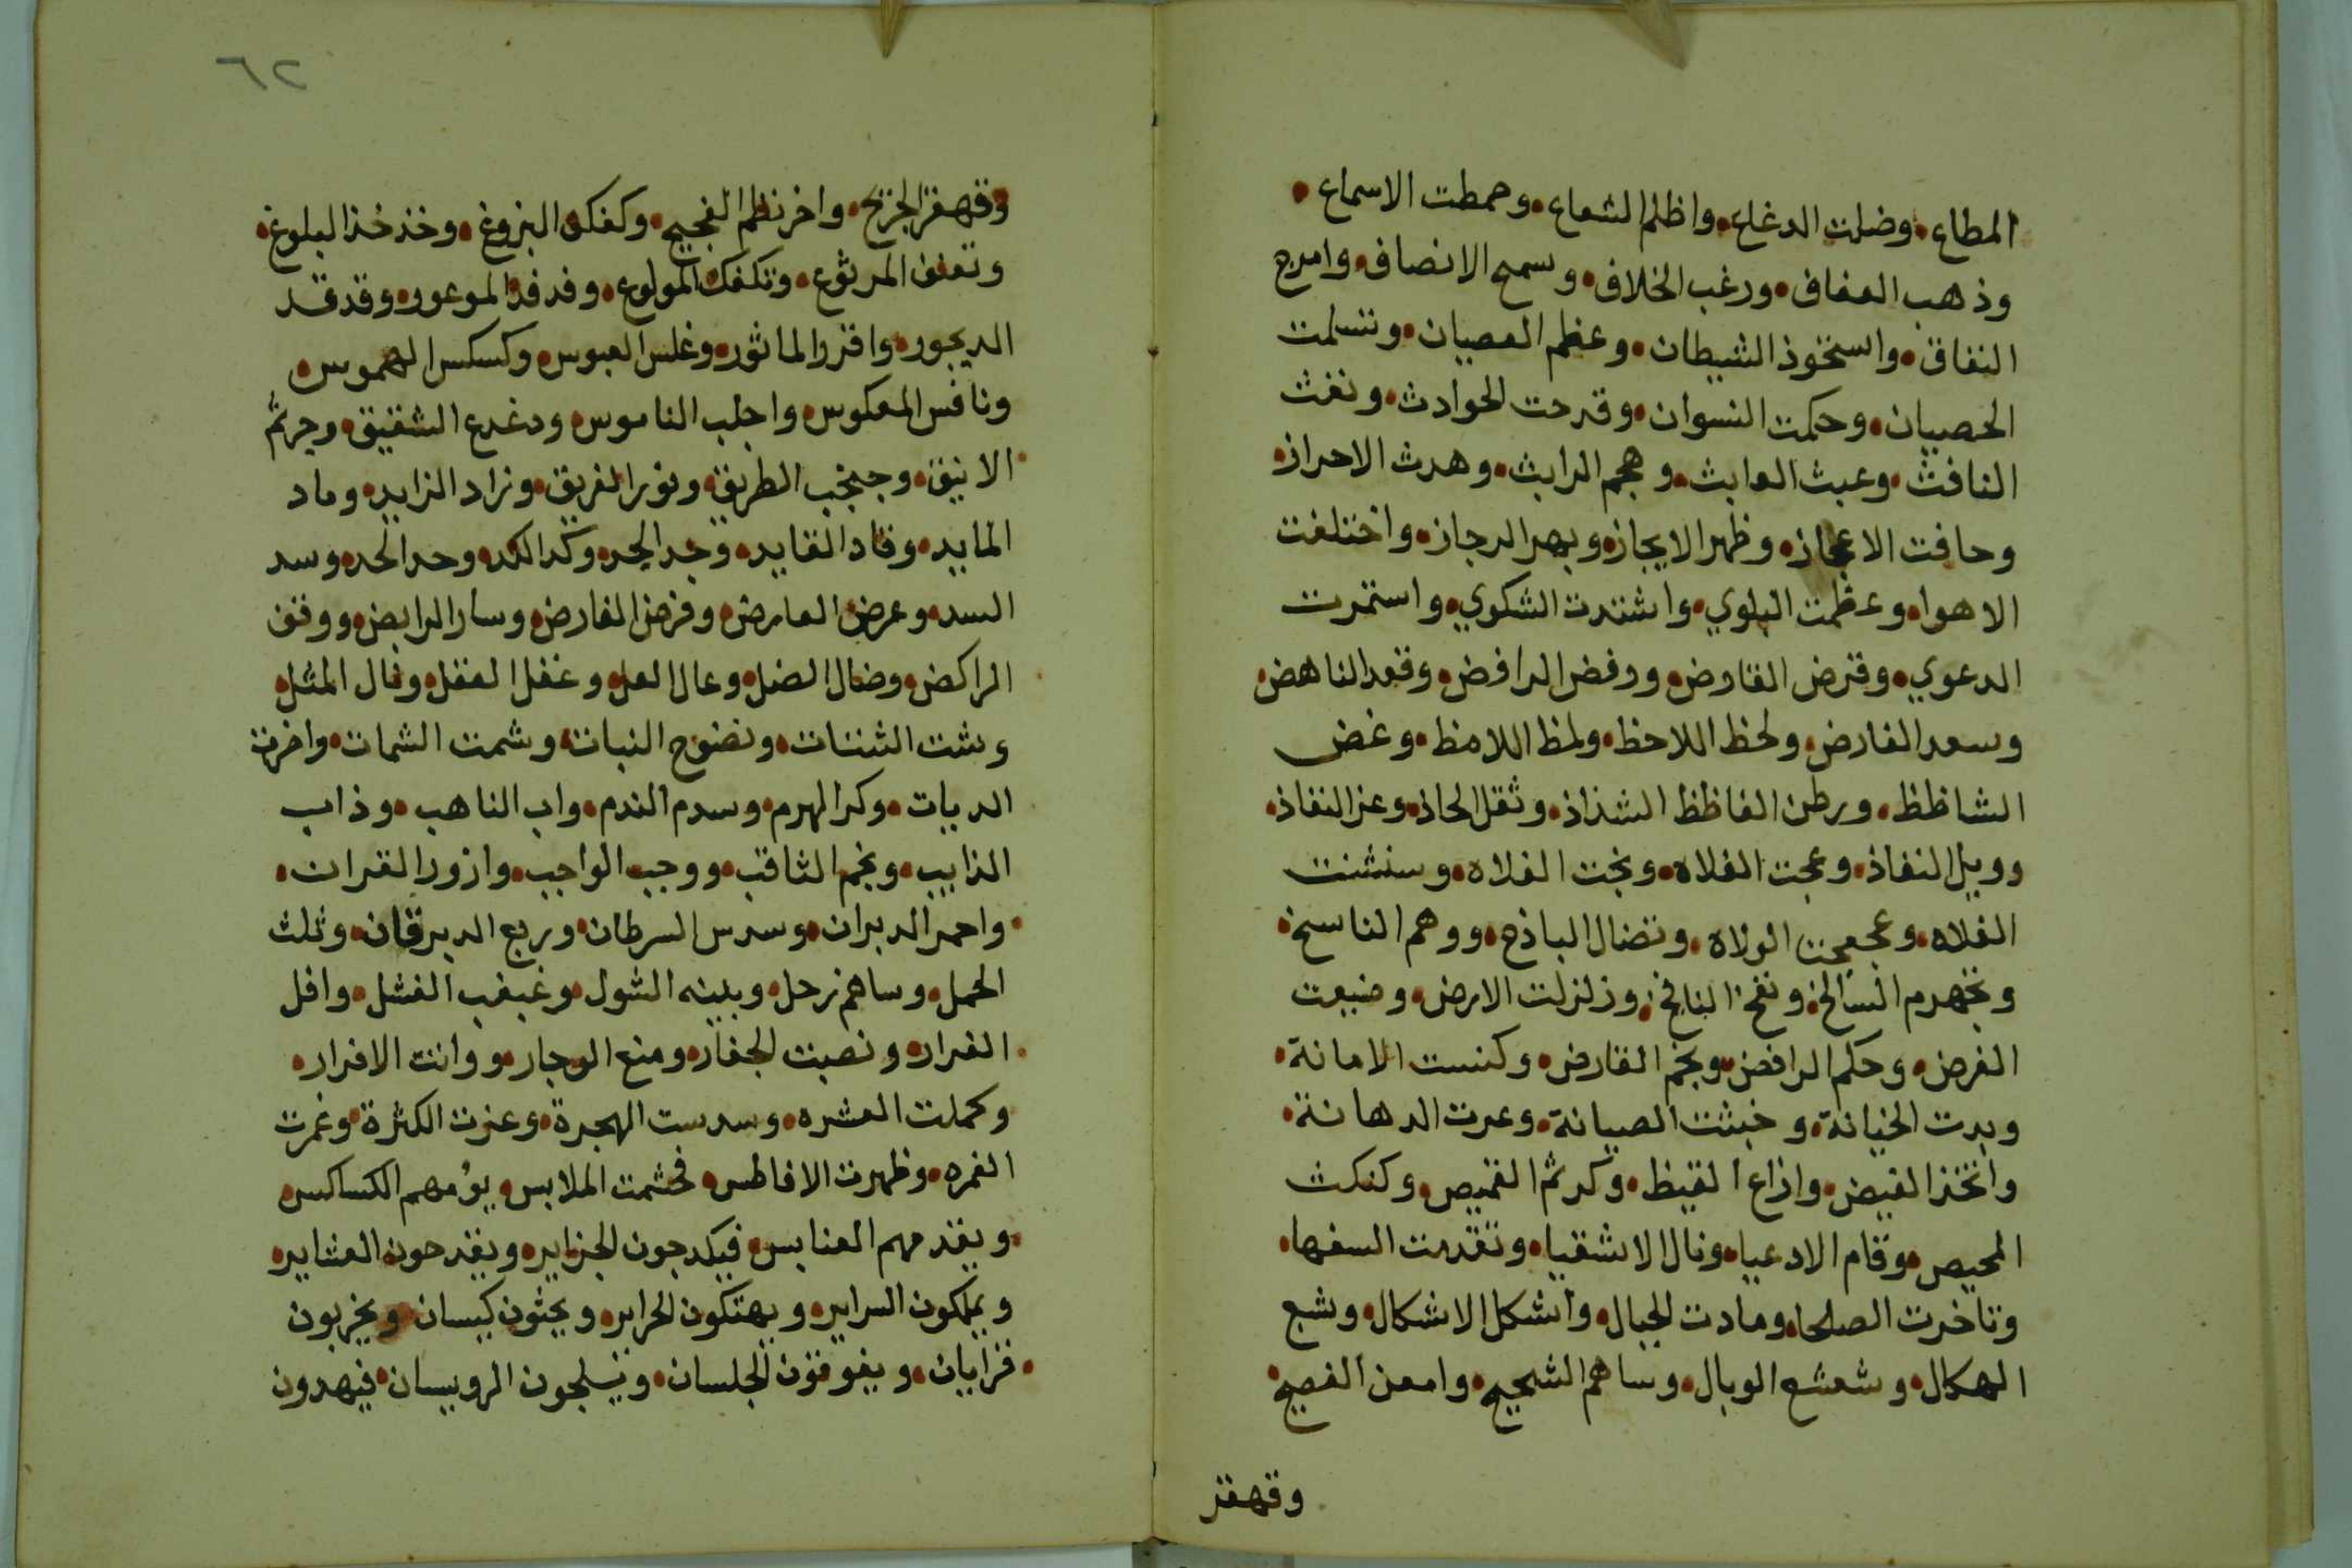 المطاع وضلت الدغاع واظلم الشعاع وحمطت الاسماع
وذهب العفاف ورغب الخلاف وسمح الانصاف وامرج
النفاق واستحوذ الشيطان وعظم العصيان وتسلمت
الخصيان وحكمت النسوان وقدحت الحوادث ونفثت
النافث وعبث العابث وهجم الرابث وهدث الاحراز
وحافت الاعجاز وظهر الايجاز وبهر الرجاز واختلفت
الاهوا وعظمت البلوي واشتدت الشكوي واستمرت
الدعوي وقرض القارض ورفض الرافض وقعد الناهض
وسعد الفارض ولحظ اللاحظ ولمظ اللامظ وغض
الشاظظ ورطن الفاظظ الشذاذ وثقل الحاذ وعز النفاذ
وويل النفاذ وعجت الفلاه ونجت الفلاه وسنشنت
الفلاه وعجعجت الولاه وتضال الباذخ ووهم الناسخ
وتجهرم السالخ ونفخ النافخ وزلزلت الارض وضيعت
الفرض وحكم الرافض ونجم القارض وكنست الامانة
وبدت الخيانة وخبثت الصيانة وعرت الدهانة
وانتخذ الفيض واذاع القيظ وكدثم القميص وكنكث
المحيص وقام الادعيا ونال الاشقيا وتقدمت السفها
وتاخرت الصلحا ومادت الجبال واشكل الاشكال وشبع
الهكال وشعشع الوبال وساهم الشحيح وامعن الفصيح
وقهقر
٦٢
وقهقر الجزيح واخرنطم الفجيح وكفكف البزوغ وخذخذ البلوغ
وتعنف المرثوع وتكفكف المولوع وفدفد الموعور وقدقد
الديجور وافتر والماثور وغلس العبوس وكسكس الهموس
ونافس المعكوس واجلب الناموس ودغدع الشقيق وجرثم
الانيق وجبخب الطريق ونور الفريق وزاد الزايد وماد
المايد وقاد القايد وجد الجد وكد الكد وحد الحد وسد
السد وعرض العارض وفرض الفارض وسار الرابض ووقف
الراكض وضال الضل وعال العل وغفل الغفل ونال المثل
وشت الشتات ونضوح النبات وشمت الشمات واخرت
الديات وكر الهرم وسدم الندم واب الناهب وذاب
الذايب ونجم الثاقب ووجب الواجب وازور القران
واحمر الدبران وسدس السرطان وربع الدبرقان وثلث
الحمل وساهم زحل وبلينه الشول وغبغب الفشل وافل
الفرار ونصبت الجفار ومنع الوجار ووانت الاقرار
وكملت العشره وسدست الهجرة وعزت الكثرة وغمرت
الغمره وظهرت الافاطس فحشمت الملابس يؤمهم الكساكس
ويقدمهم العنابس فيكدجون الجزاير ويقدحون العشاير
ويملكون السراير ويهتكون الحراير ويحثون كيسان ويخربون
خزايان ويفوفون الجلسان ويسلجون الرويسان فيهدون